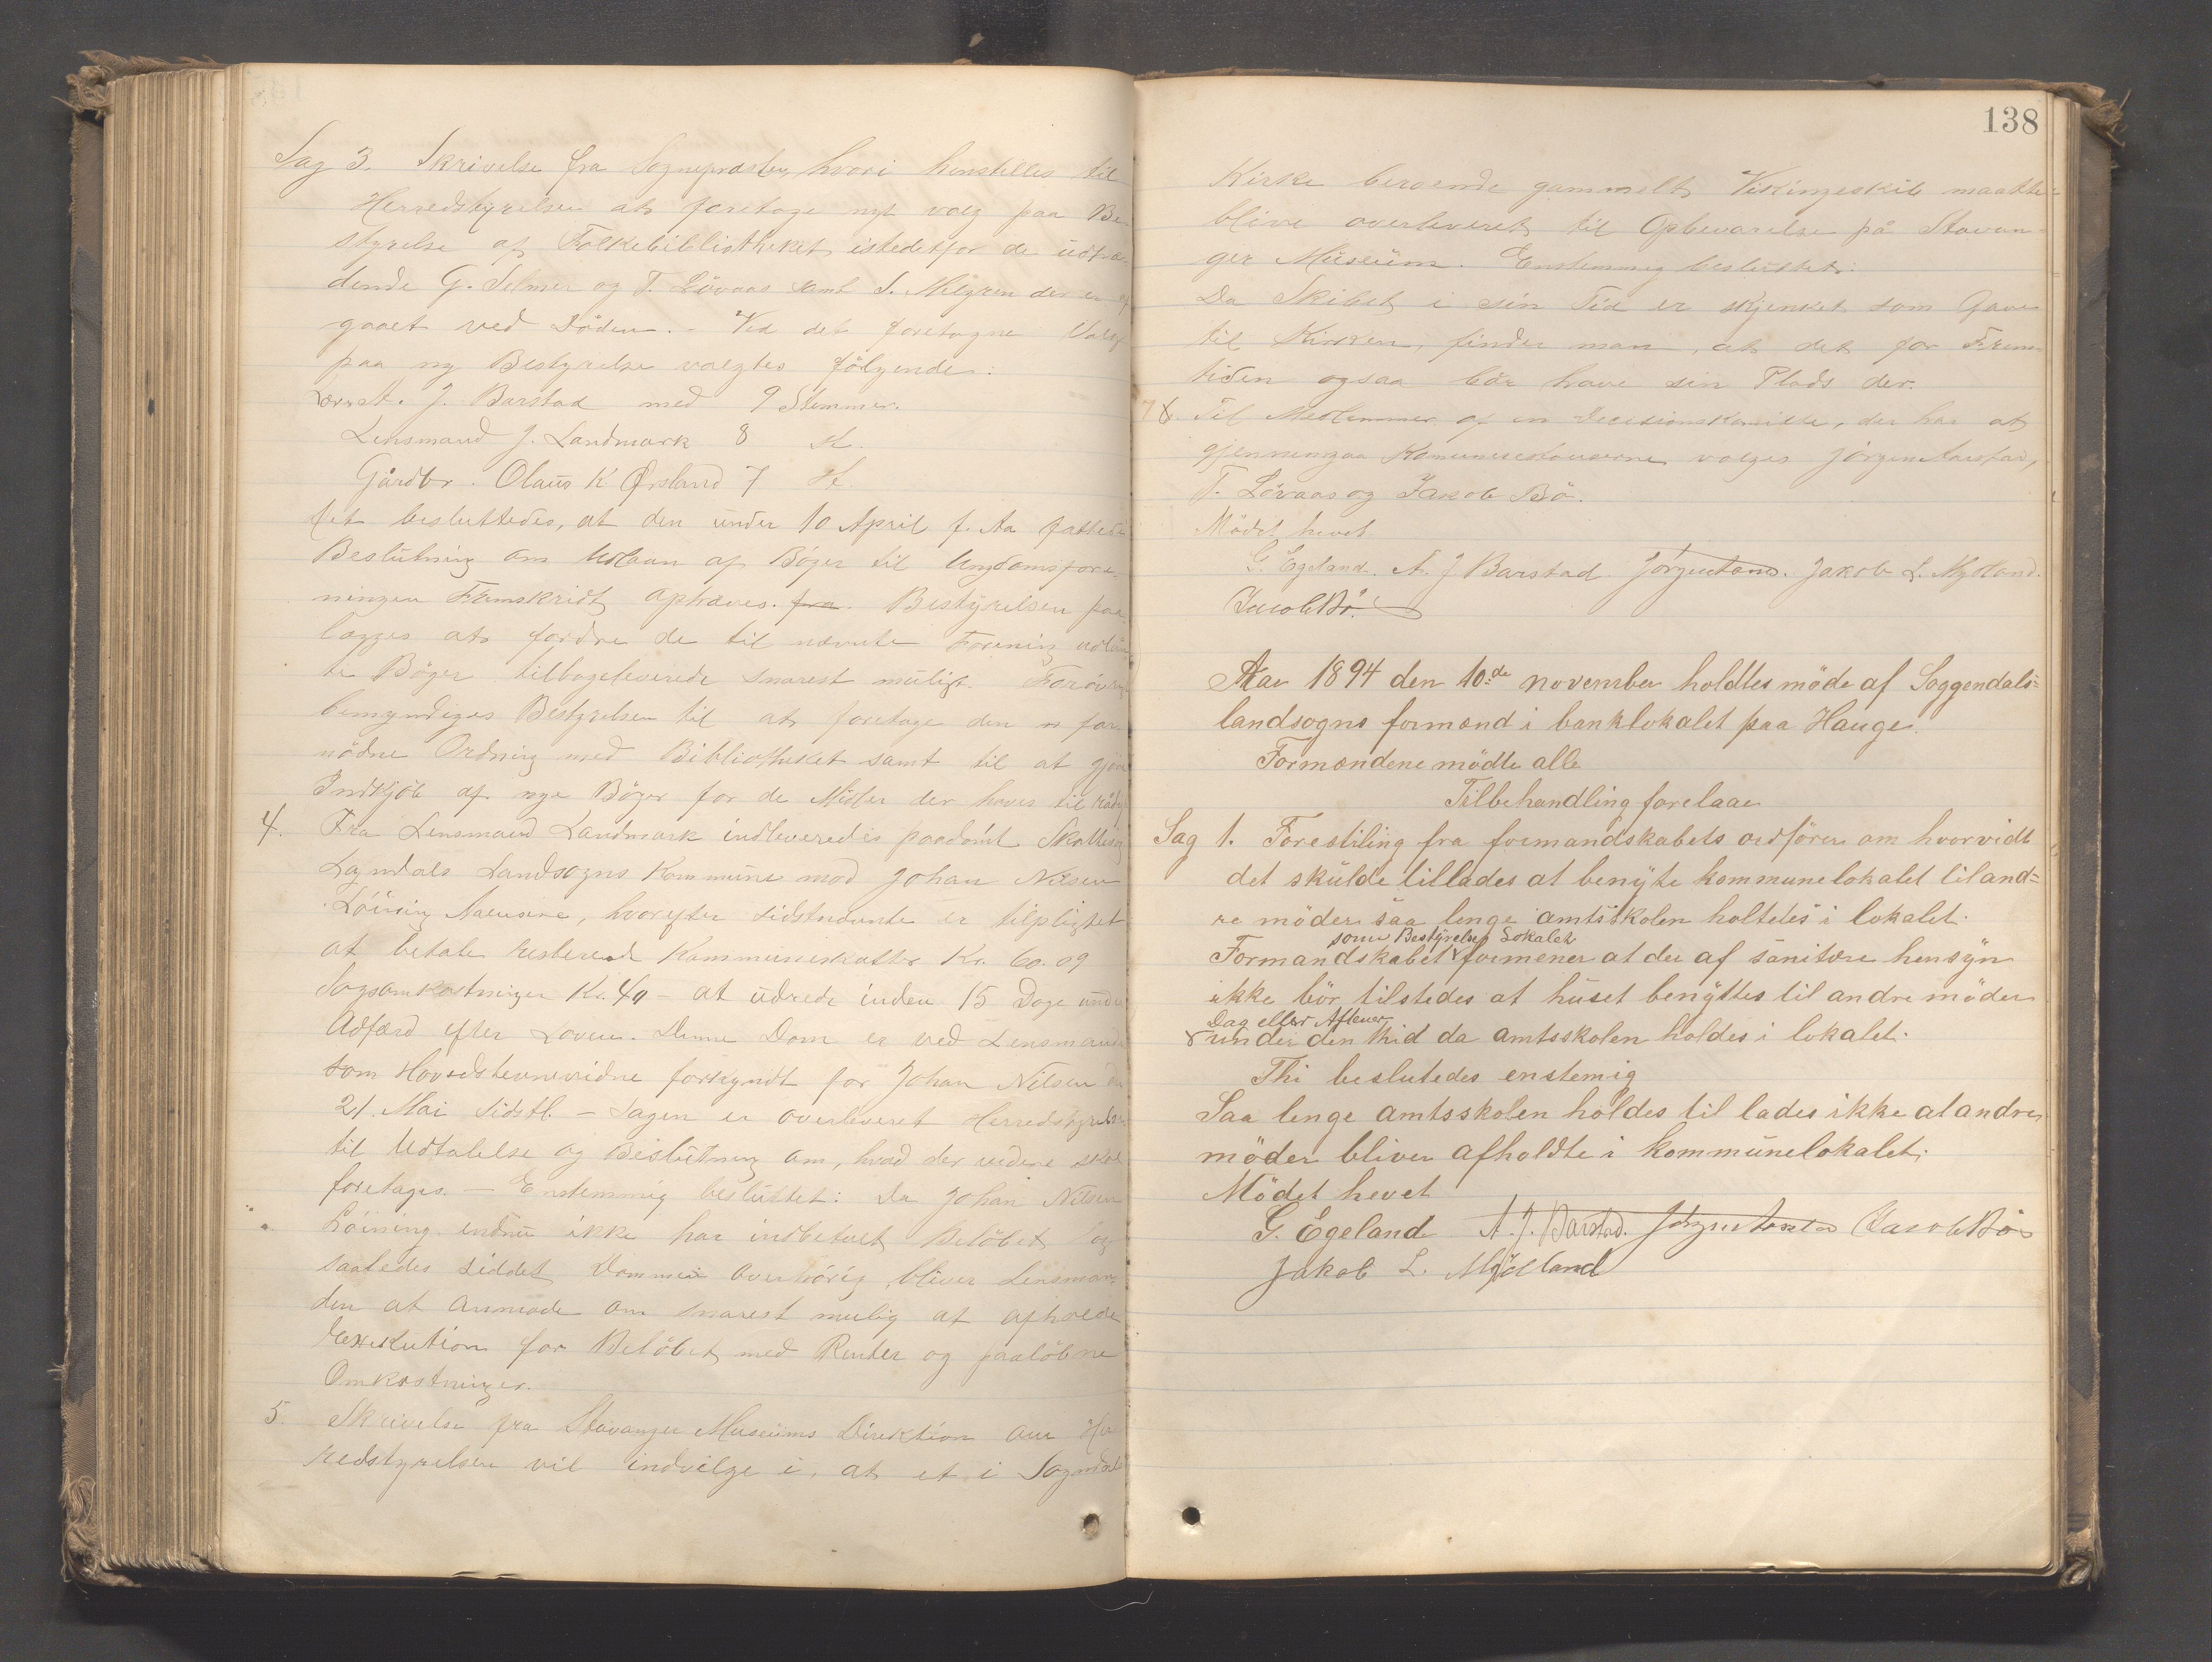 Sag 3. Skrivelse fra Sognepræsten, hvori henstilles til
Herredstyrelsen at foretage nyt valg paa Be-
styrelse af Folkebibliotheket istedetfor de udtræ-
dende G. Selmer og T. Lövaas samt S. der er af
gaaet ved Döden. - Ved det foretagne Valg
paa ny Bestyrelse valgtes fölgende:
A. J. Barstad med 9 Stemmer.
Lensmand J. Landmark 8 St.
Gårdbr. Olaus K Ørsland 7 St.
Det besluttedes, at den under 10 April f. Aa fattede
Beslutning om Udlaan af Böger til Ungdomsfore-
ningen Fremskridt ophæves. fra. Bestyrelsen paa-
lægges at fordre de til nævnte Forening udlån-
te Böger tilbageleverede snarest muligt. Forövrig
bemyndiges Bestyrelsen til at foretage den for-
nödne Ordning med Bibliotheket samt til at gjöre
Indkjöb af nye Böger for de Midler der haves til
4. Fra Lensmand Landmark indleveredes paadömt Skattesag
Sogndals Landsogns Kommune mod Johan Nilsen
Löining, hvorefter sidstnævnte er tilpligtet
at betale resterend Kommuneskatter Kr. 60.09
Sagsomkostninger Kr. 40 - at udrede inden 15 Dage under
Adfærd efter Loven. Denne Dom er ved Lensmand
som Hovedstevnevidne forkyndt for Johan Nilsen den
21. Mai sidstl. - Sagen er overleveret Herredstyrelsen
til Udtalelse og Beslutning om, hvad der videre skal
foretages. - Enstemmig besluttet: Da Johan Nilsen
Löining endnu ikke har indbetalt Belöbet og
saaledes siddet Dommen overhörig, bliver Lensman-
den at anmode om snarest mulig at afholde
Exekution for Belöbet med Renter og paalöbne
Omkostninger.
5. Skrivelse fra Stavanger Museums Direktion om Her-
redstyrelsen vil indvilge i, at et i Sogndals
138
Kirke beroende gammelt Vikingeskib maatte
blive overleveret til Opbevarelse på Stavan-
ger Museum. Enstemmig besluttet:
Da Skibet i sin Tid er skjenket som Gave
til Kirken, finder man, at det for Frem-
tiden ogsaa bör have sin Plads der.
Til Medlemmer af en Decisionskomitte, der har at
gjennemgaa Kommunekasserne valges Jörgen Aarstad,
T. Lövaas og Jakob Bö.
Mödet hevet
G. Egeland. A. J Barstad Jörgen Aarstad. Jakob L. Mydland.
Jacob Bö.
Aar 1894 den 10de november holdtes möde af Soggendals=
landsogns formænd i banklokalet paa Hauge.
Formændene mödte alle
Tilbehandling forelaae
Sag 1. Forestiling fra formandskabets ordförer om hvorvidt
det skulde tillades at benyte kommunelokalet til and=
re möder saa lenge amtsskolen holtetes i lokalet.
som Bestyrelse Lokalet
Formandskabet formener at der af sanitære hensyn
ikke bör tilstedes at huset benyttes til andre möder
Dag eller Aftener
under den tid da amtsskolen holdes i lokalet.
Thi beslutedes enstemig
Saa lenge amtsskolen holdes til lades ikke at andre
möder bliver afholdte i kommunelokalet.
Mödet hevet
G. Egeland A. J. Barstad. Jörgen Aarstad Jacob Bö
Jakob L. Mydland